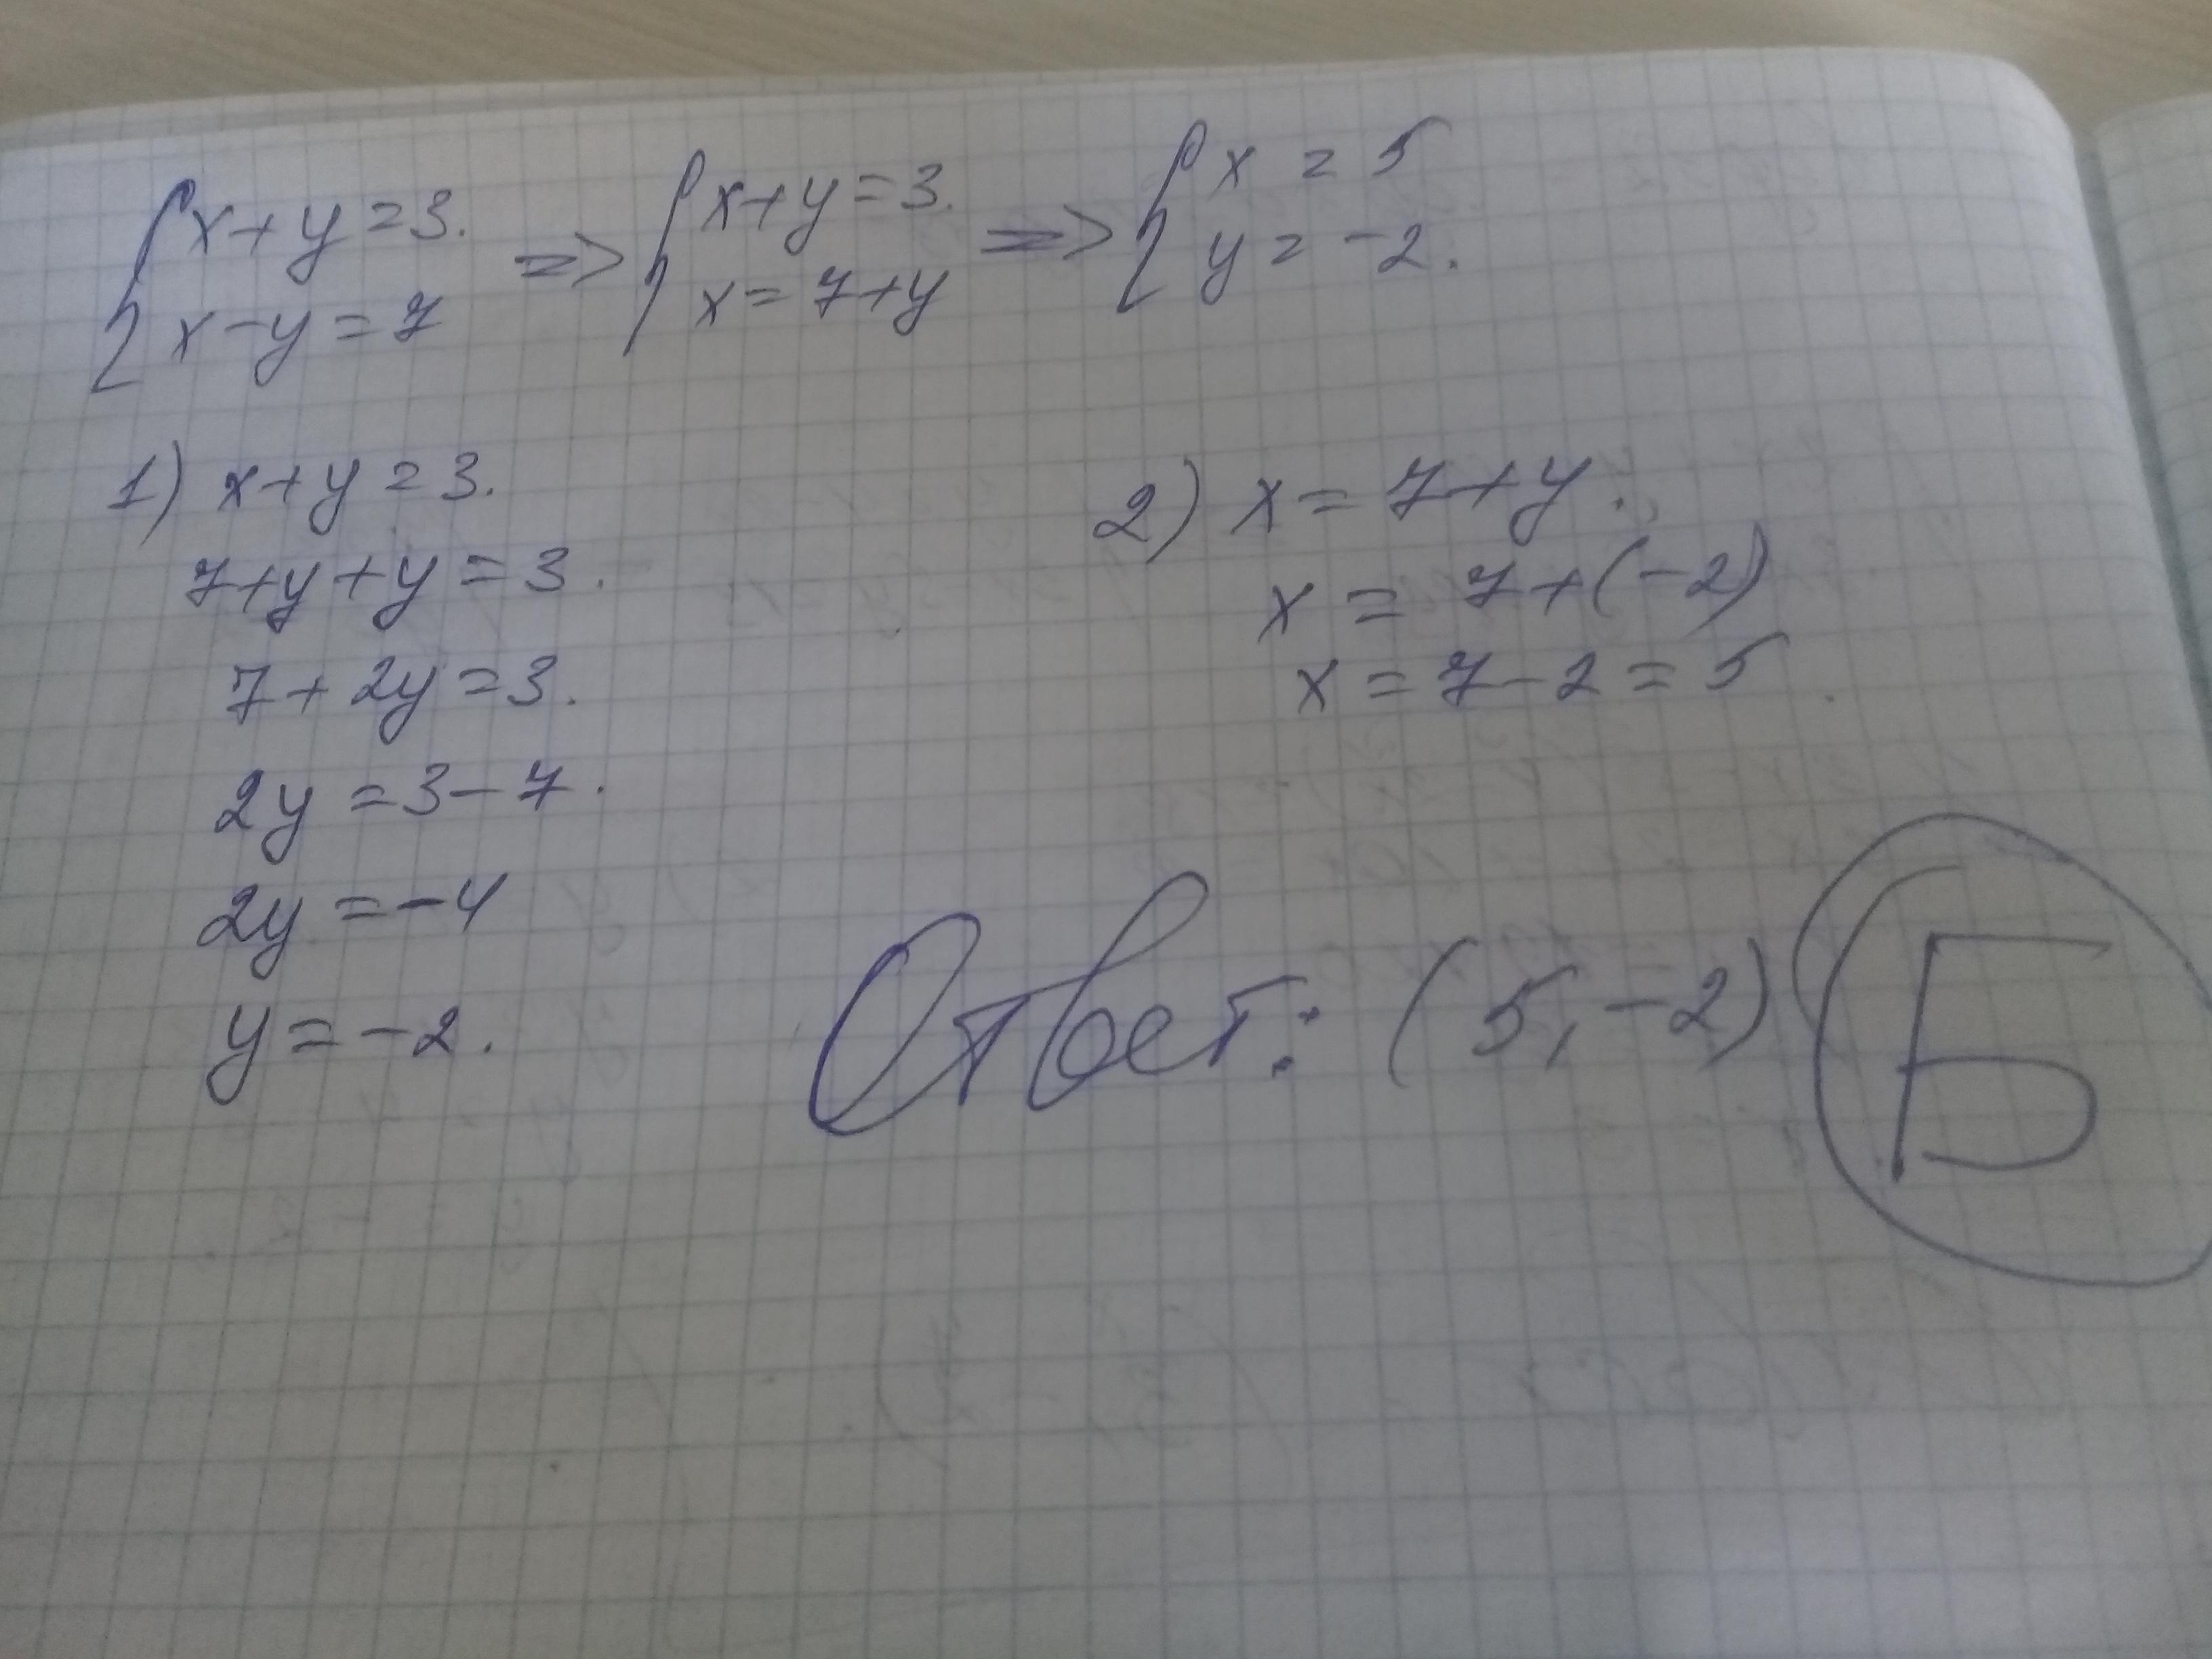 {x+y=3. => {x+y=3. => {x=5
x-y=7 x=7+y y=-2.
1) x+y=3.
7+y+y=3.
7+2y=3.
2y=3-7.
2y=-4
y=-2.
2) x=7+y.
x=7+(-2)
x=7-2=5.
Ответ: (5,-2) Б